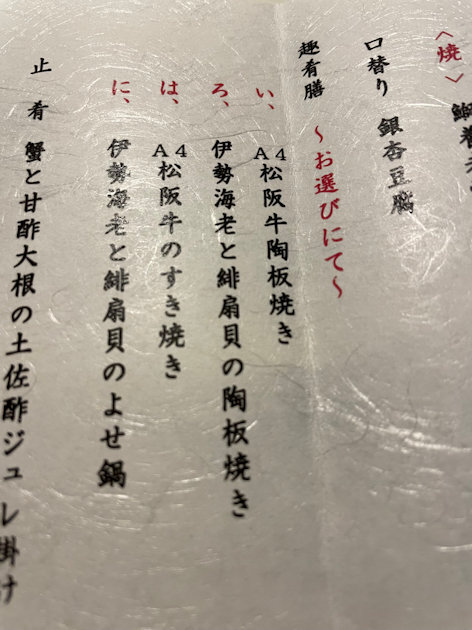 〈焼〉
口替り 銀杏豆腐
趣肴膳 〜お選びにて〜
い、A4松阪牛陶板焼き
ろ、伊勢海老と緋扇貝の陶板焼き
は、A4松阪牛のすき焼き
に、伊勢海老と緋扇貝のよせ鍋
止肴 蟹と甘酢大根の土佐酢ジュレ掛け